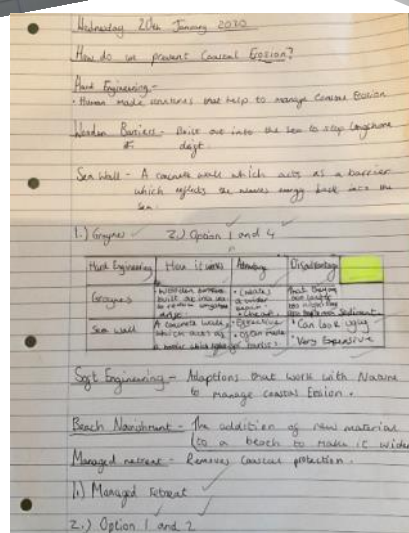 Wednesday 20th January 2020
How do we prevent Coastal Erosion?
Hard Engineering -
• Human made structures that help to manage Coastal Erosion
Wooden Barriers - Built out into the sea to stop longshore
drift
Sea Wall - A concrete wall which acts as a barrier
which reflects the waves energy back into the
sea.
1.) Groynes 2.) Option 1 and 4
Hard Engineering How it works Disadvantage
Groynes
• Wooden barriers built out into sea
a wider
Sea wall
A concrete wall which acts as a barrier which
• Effective
• Can look ugly
• Very Expensive
Soft Engineering - Adaptions that work with Nature
to manage coastal Erosion.
Beach Norishment - The addition of new material
to a beach to make it wider
Managed retreat - Removes Coastal protection.
1.) Managed Retreat
2.) Option 1 and 2